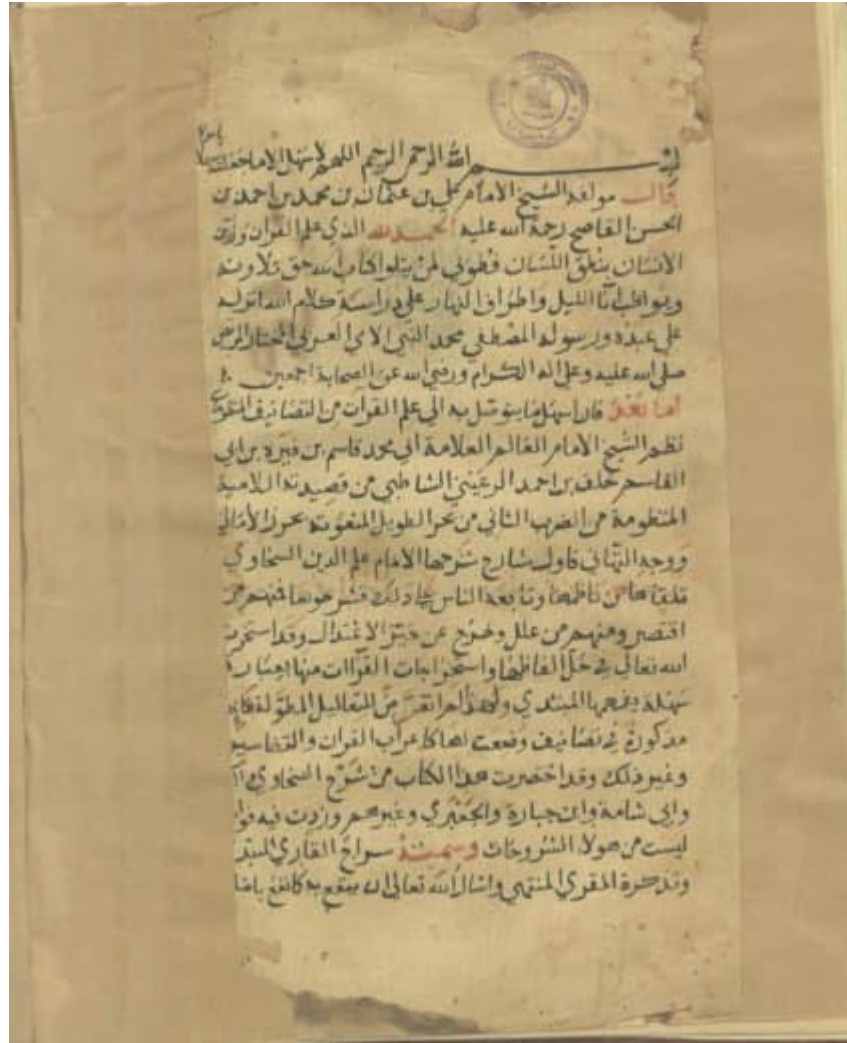 بسم الله الرحمن الرحيم اللهم لا سهل الا ما جعلته سهلا
قال مولفه الشيخ الامام علي بن عثمان بن محمد بن احمد بن
الحسن القاصح رحمة الله عليه الحمد لله الذي علم القران وزين
الانسان بنطق اللسان فطوبى لمن يتلوا كتاب الله حق تلاوته
ويواظب انا الليل واطراف النهار على دراسة كلام الله انزله
على عبده ورسوله المصطفى محمد النبي الامي العربي المختار المرتضى
صلى الله عليه وعلى اله الكرام ورضي الله عن الصحابة اجمعين
اما بعد فان اسهل ما يتوصل به الى علم القرات من التصانيف
نظم الشيخ الامام العالم العلامة ابي محمد قاسم بن فيره بن ابي
القاسم خلف بن احمد الرعيني الشاطبي من قصيدته اللامية
المنظومة من الضرب الثاني من بحر الطويل المنعوتة بحرز الاماني
ووجه التهاني فاول شارح شرحها الامام علم الدين السخاوي
تلقاها من ناظمها وتابعه الناس على ذلك فشرحوها فمنهم من
اقتصر ومنهم من علل وخرج عن حيز الاعتدال وقد استخرت
الله تعالى في حل الفاظها واستخراجات القراات منها بعبارة
سهلة يفهمها المبتدي ولهذا لم اتعرض من التعاليل المطولة فانها
مذكورة في تصانيف وضعت لها كاعراب القران والتفاسير
وغير ذلك وقد اختصرت هذا الكتاب من شرح السخاوي
وابي شامة وابن جبارة والجعبري وغيرهم وزدت فيه فوا
ليست من هولاء الشروحات وسميته سراج القاري المبتد
وتذكرة المقري المنتهي واسال الله تعالى ان ينفع به كما نفع باصله